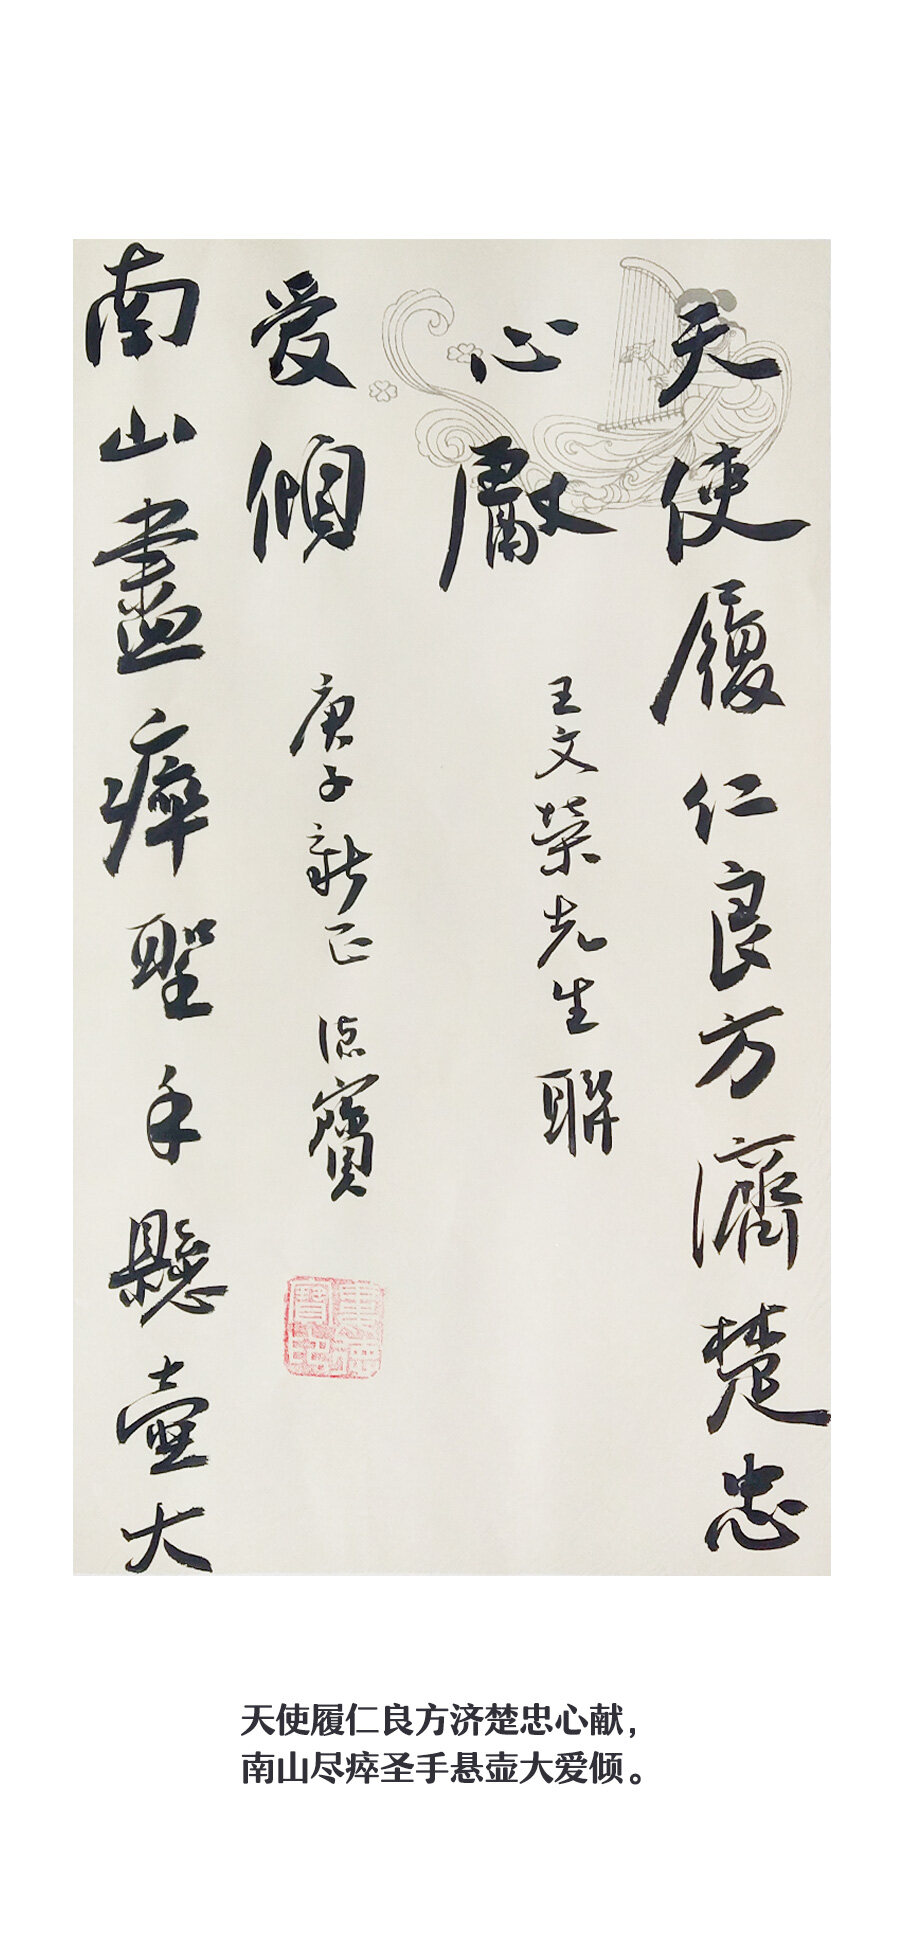 天使履仁良方濟楚忠
心獻
王文榮先生聯
南山盡瘁聖手懸壺大
爱傾
庚子新正 德寶
天使履仁良方济楚忠心献，
南山尽瘁圣手悬壶大爱倾。